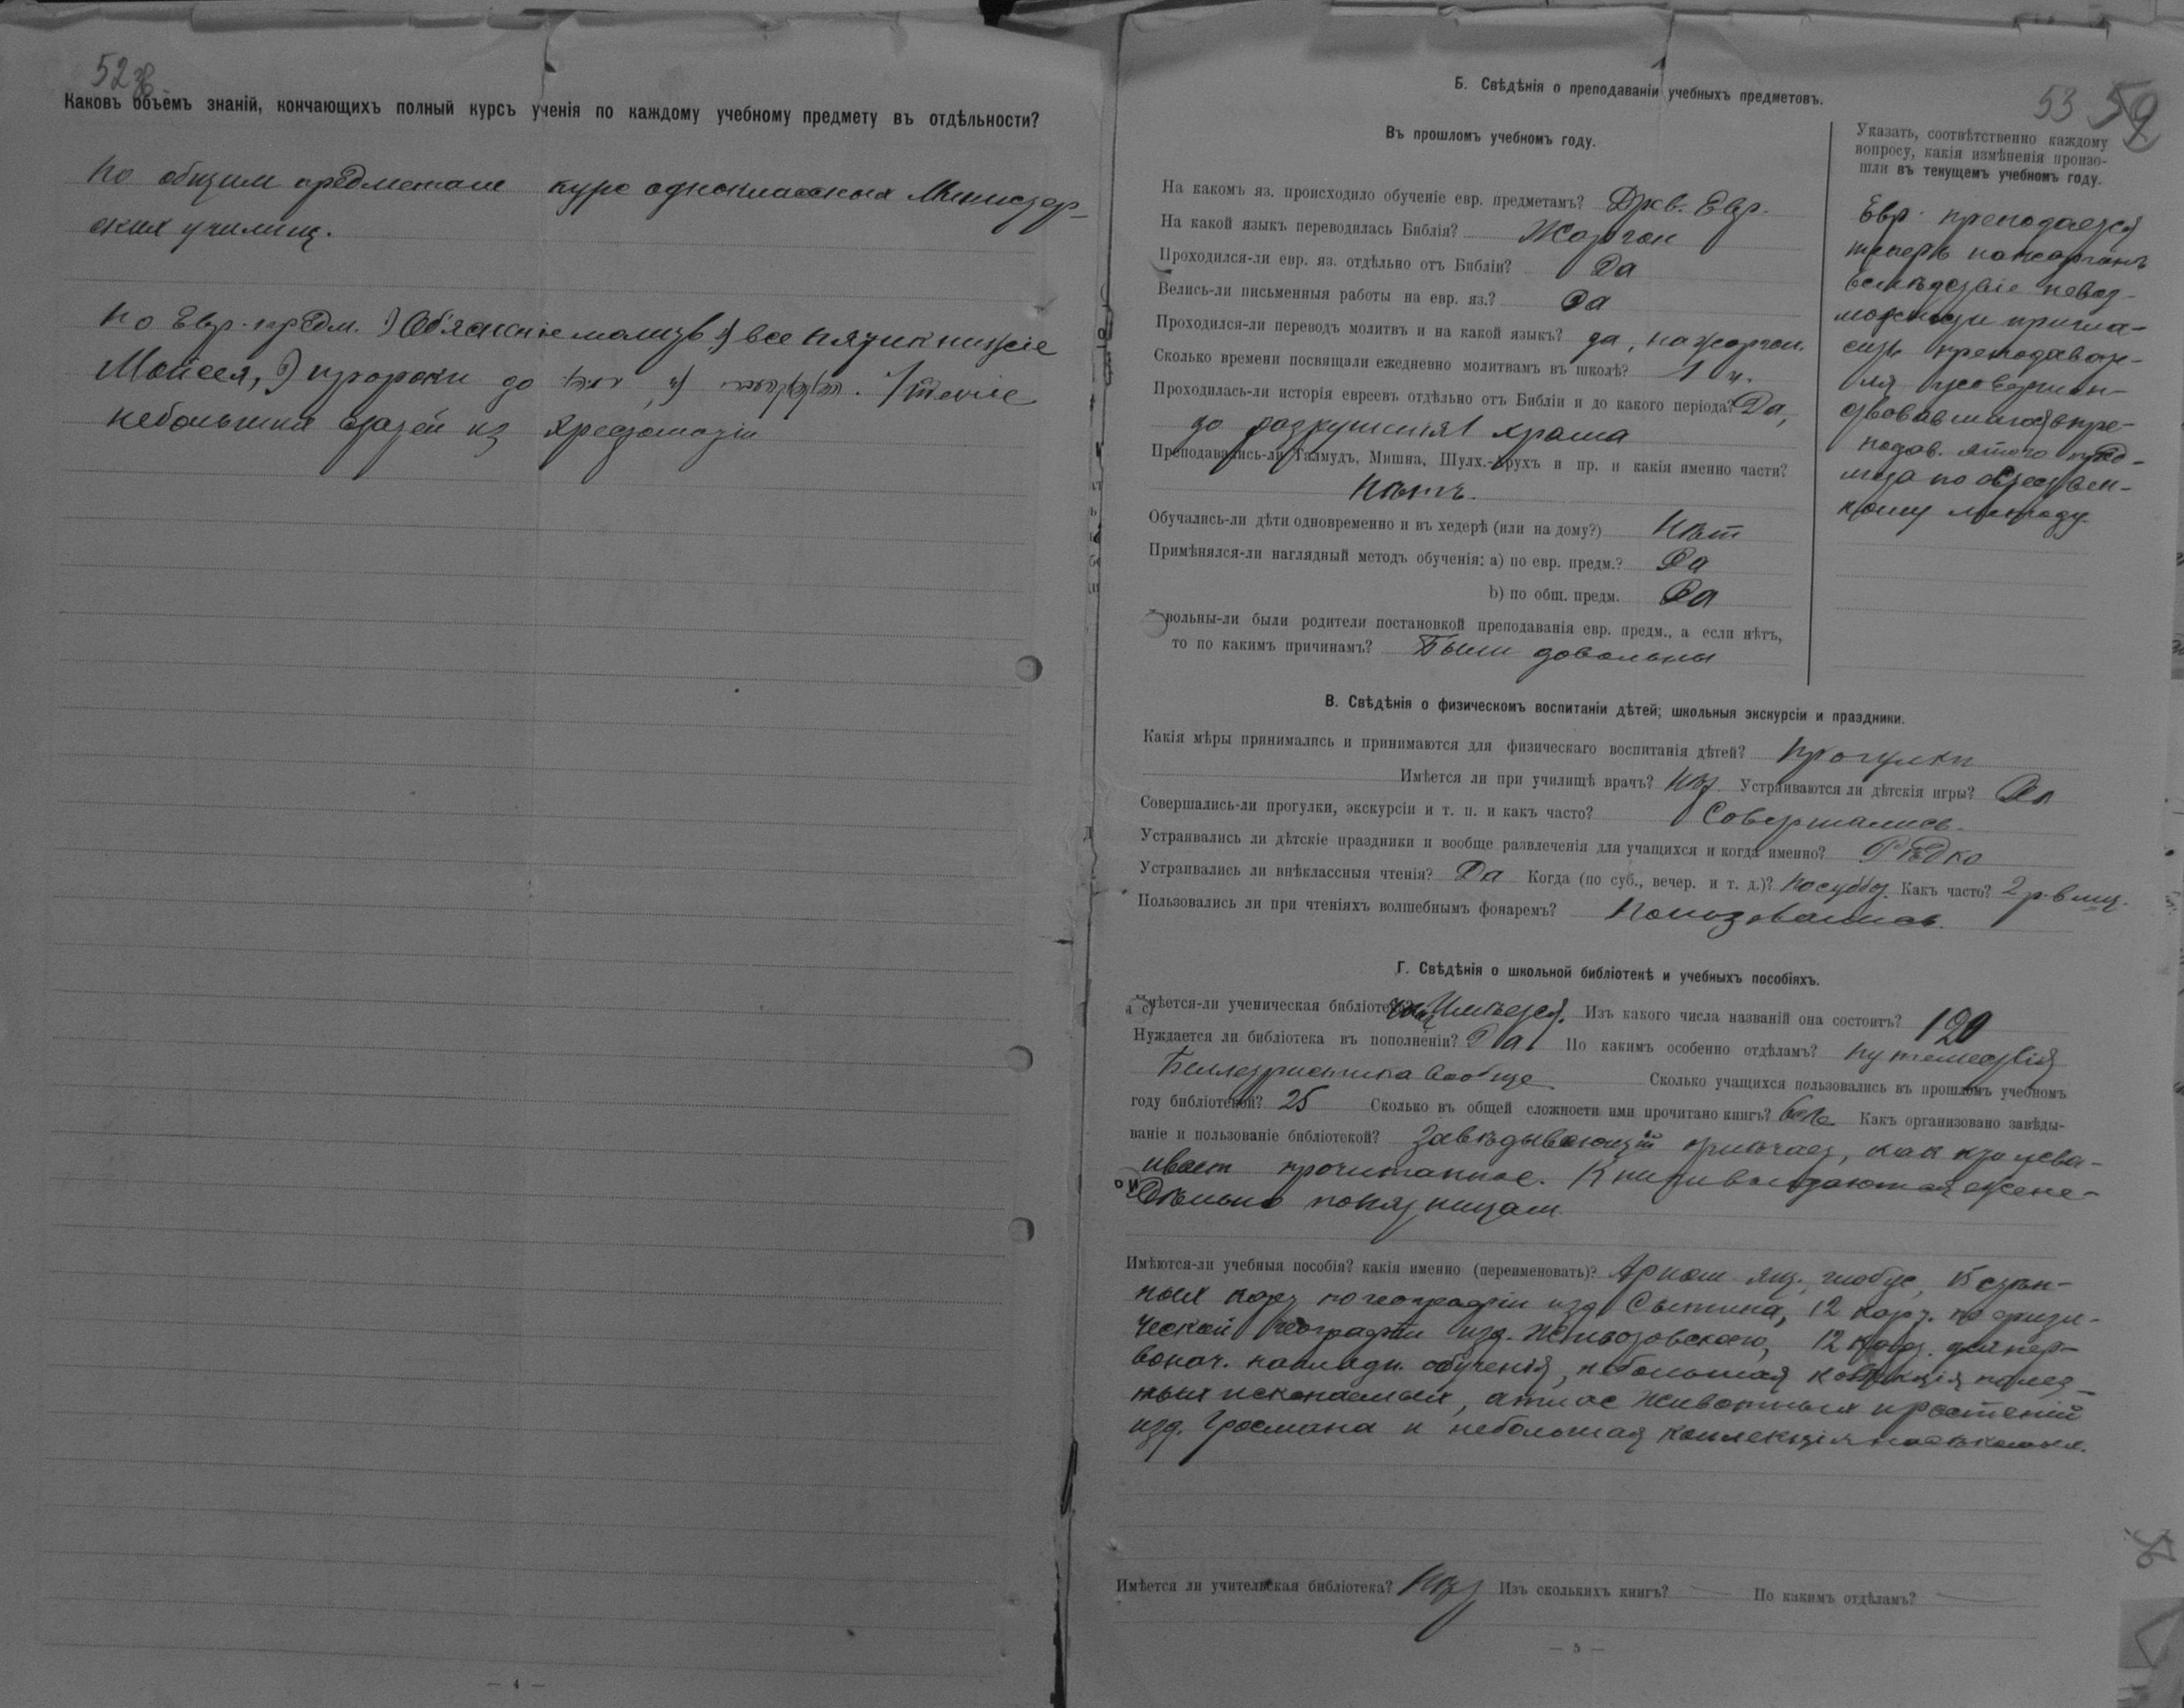 52 об
Каковъ объёмъ знаній, кончающихъ полный курсъ ученія по каждому учебному предмету въ отдѣльности?
По общим предметам курс одноклассных Министер-
ских училищ.
По Евр. предм. 1) Объяснение молитв 2) все пятикнижие
Мойсея, 3) пророки до 4) 5) Чтение
небольших статей из хрестоматіи
— 4 —
53 52
Б. Свѣдѣнія о преподаваніи учебныхъ предметовъ.
Въ прошломъ учебномъ году.
На какомъ яз. происходило обученіе евр. предметамъ? Древ. Евр.
На какой языкъ переводилась Библія? Жаргон
Проходился-ли евр. яз. отдѣльно отъ Библіи? Да
Велись-ли письменныя работы на евр. яз.? Да
Проходился-ли переводъ молитвъ и на какой языкъ? да, на жаргон.
Сколько времени посвящали ежедневно молитвамъ въ школѣ? 1 ч.
Проходилась-ли исторія евреевъ отдѣльно отъ Библіи и до какого періода? Да,
до разрушенія храма
Преподавались-ли Талмудъ, Мишна, Шулх.-Арухъ и пр. и какія именно части?
Нѣтъ.
Обучались-ли дѣти одновременно и въ хедерѣ (или на дому?) Нѣт
Примѣнялся-ли наглядный методъ обученія: а) по евр. предм.? Да
b) по общ. предм. Да
вольны-ли были родители постановкой преподаванія евр. предм., а если нѣтъ,
то по какимъ причинамъ? Были довольны
Указать, соотвѣтственно каждому
вопросу, какія измѣненія произо-
шли въ текущемъ учебномъ году.
Евр. преподается
теперь на жаргонѣ
вслѣдствіе невоз-
можности пригла-
сить преподават-
ля усовершен-
ствовавшагося в пре-
подав. этого пред-
мета по естествен-
ному методу.
В. Свѣдѣнія о физическомъ воспитаніи дѣтей; школьныя экскурсіи и праздники.
Какія мѣры принимались и принимаются для физическаго воспитанія дѣтей? Прогулки
Имѣется ли при училищѣ врачъ? Нѣт. Устраиваются ли дѣтскія игры? Да
Совершались-ли прогулки, экскурсіи и т. п. и какъ часто? Совершались.
Устраивались ли дѣтскіе праздники и вообще развлеченія для учащихся и когда именно? Рѣдко
Устраивались ли внѣклассныя чтенія? Да Когда (по суб., вечер. и т. д.)? По суббот. Какъ часто? 2 р. в мщ.
Пользовались ли при чтеніяхъ волшебнымъ фонаремъ? Пользовались.
Г. Свѣдѣнія о школьной библіотекѣ и учебныхъ пособіяхъ.
мѣется-ли ученическая библіотека? Имѣется. Изъ какого числа названій она состоитъ? 120
Нуждается ли библіотека въ пополненіи? Да По какимъ особенно отдѣламъ? Путешествія
Беллетристика вообще Сколько учащихся пользовались въ прошломъ учебномъ
году библіотекой? 25 Сколько въ общей сложности ими прочитано книгъ? Какъ организовано завѣды-
ваніе и пользованіе библіотекой? Завѣдывающій отмѣчает, как кто усва-
ивает прочитанное. Книги выдаются ежене-
дѣльно по пятницам.
Имѣются-ли учебныя пособія? какія именно (переименовать)? Арифм. ящ., глобус, 15 стѣн-
ных карт по географіи изд. Сытина, 12 карт. по физи-
ческой географіи изд. 12 карт. для пер-
вонач. наглядн. обученія, небольшая коллекція полез-
ных ископаемых, атлас животных и растеній
изд. Гросмана и небольшая коллекція насѣкомых.
Имѣется ли учительская библіотека? Нѣт Изъ сколькихъ книгъ? — По какимъ отдѣламъ? —
— 5 —